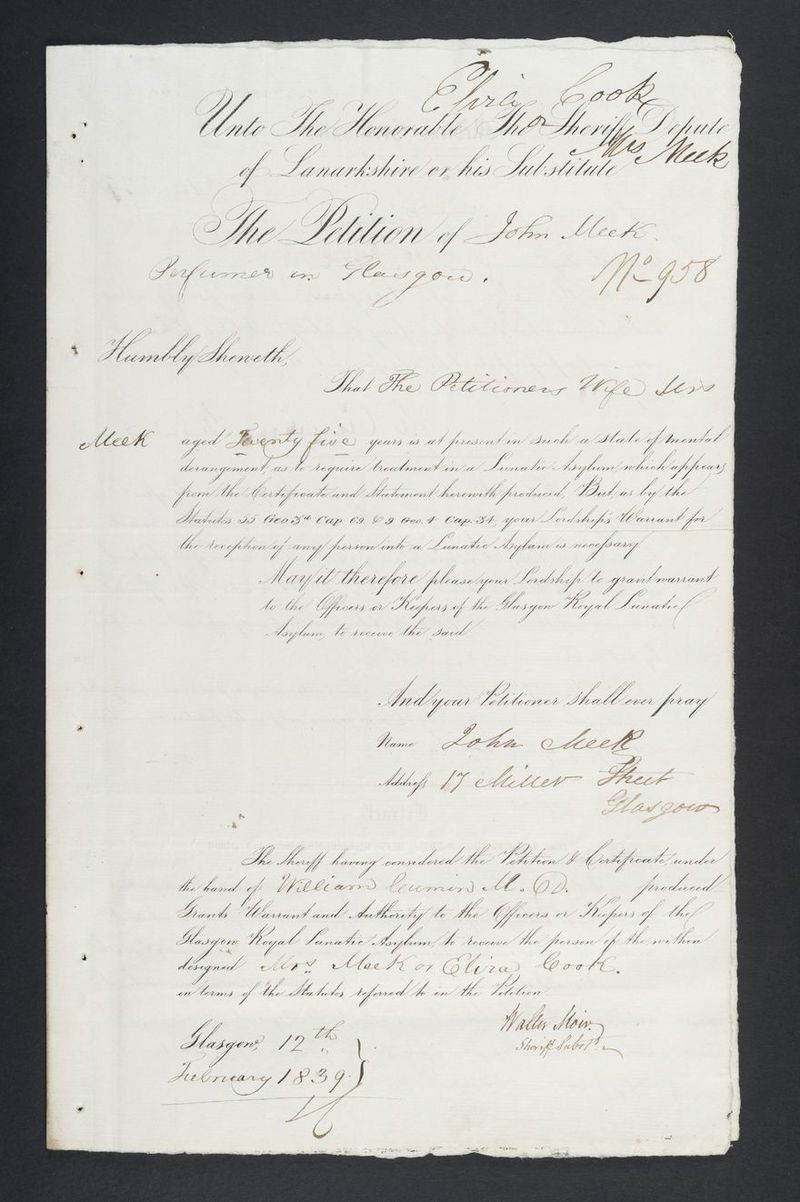 Eliza Cook
or
Mrs Meek
Unto The Honorable The Sheriff Depute
of Lanarkshire or his Substitute
The Petition of John Meek
Perfumer in Glasgow.
No 958
Humbly Sheweth,
That The Petitioners Wife Mrs
Meek aged Twenty five years is at present in such a state of mental
derangement, as to require treatment in a Lunatic Asylum, which appears
from the Certificate and Statement herewith produced, But, as by the
Statutes 55 Geo. 3rd Cap. 69. & 9 Geo. 4 Cap. 34. your Lordship's Warrant for
the reception of any person into a Lunatic Asylum is necessary
May it therefore please your Lordship to grant warrant
to the Officers or Keepers of the Glasgow Royal Lunatic
Asylum, to receive the said
And your Petitioner shall ever pray
Name John Meek
Address 17 Miller Street
Glasgow
The Sheriff having considered the Petition & Certificate, under
the hand of William Cumin M.D. produced
Grants Warrant and Authority to the Officers or Keepers of the
Glasgow Royal Lunatic Asylum, to receive the person of the within
designed Mrs. Meek or Eliza Cook.
in terms of the Statutes referred to in the Petition
Walter Moir
Sheriff Subst.
Glasgow, 12th
February 1839